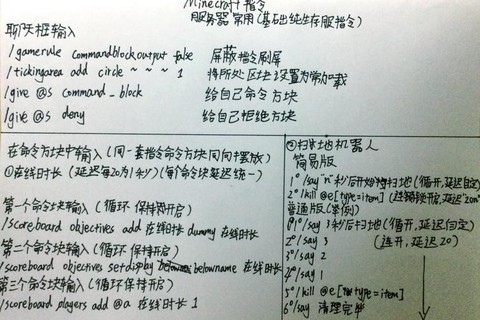 Minecraft指令
服务器常用(基础纯生存服指令)
聊天框输入
/gamerule commandblockoutput false 屏蔽指令刷屏
/tickingarea add circle ~ ~ ~ 1 将所处区块设置为常加载
/give @s command_block 给自己命令方块
/give @s deny 给自己拒绝方块
在命令方块中输入(同一套指令命令方块同向摆放)
①在线时长(延迟每20为1秒)(每个命令块延迟统一)
第一个命令块输入(循环 保持开启)
/scoreboard objectives add 在线时长 dummy 在线时长
第二个命令块输入(循环 保持开启)
/scoreboard objectives setdisplay belowname 在线时长
第三个命令块输入(循环保持开启)
/scoreboard players add @a 在线时长 1
②扫地机器人
简易版
1° /say "n"秒后开始扫地(循开,延迟自定)
2° /kill @e[type=item] (连锁保开,延迟"20n")
普通版(举例)
1° /say 3秒后扫地(循开,延迟自定)
2° /say 3 (连开,延迟20)
3° /say 2
4° /say 1
5° /kill @e[type=item]
6° /say 清理完毕